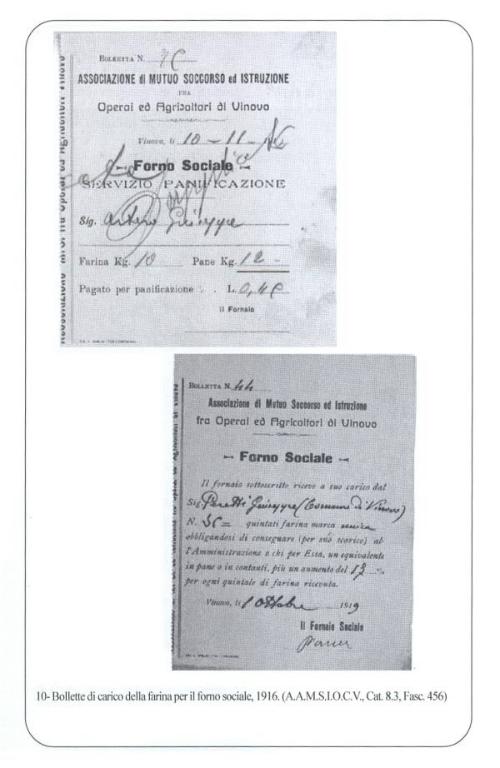 BOLLETTA N.
ASSOCIAZIONE di MUTUO SOCCORSO ed ISTRUZIONE
FRA
Operai ed Agricoltori di Vinovo
Vinovo, li 10-11-
Forno Sociale
SERVIZIO PANIFICAZIONE
Sig. Giuseppe
Farina Kg. 10 Pane Kg. 12
Pagato per panificazione . . L. 0,40
Il Fornaio
BOLLETTA N. 44
Associazione di Mutuo Soccorso ed Istruzione
fra Operai ed Agricoltori di Vinovo
Forno Sociale
Il fornaio sottoscritto riceve a suo carico dal
Sig. Peretti Giuseppe (Comune di Vinovo)
N. quintali farina marca unica
obbligandosi di consegnare (per suo scarico) al-
l'Amministrazione o chi per Essa, un equivalente
in pane o in contanti, più un aumento del 13
per ogni quintale di farina ricevuta.
Vinovo, li 1 Ottobre 1919
Il Fornaio Sociale
10- Bollette di carico della farina per il forno sociale, 1916. (A.A.M.S.I.O.C.V., Cat. 8.3, Fasc. 456)